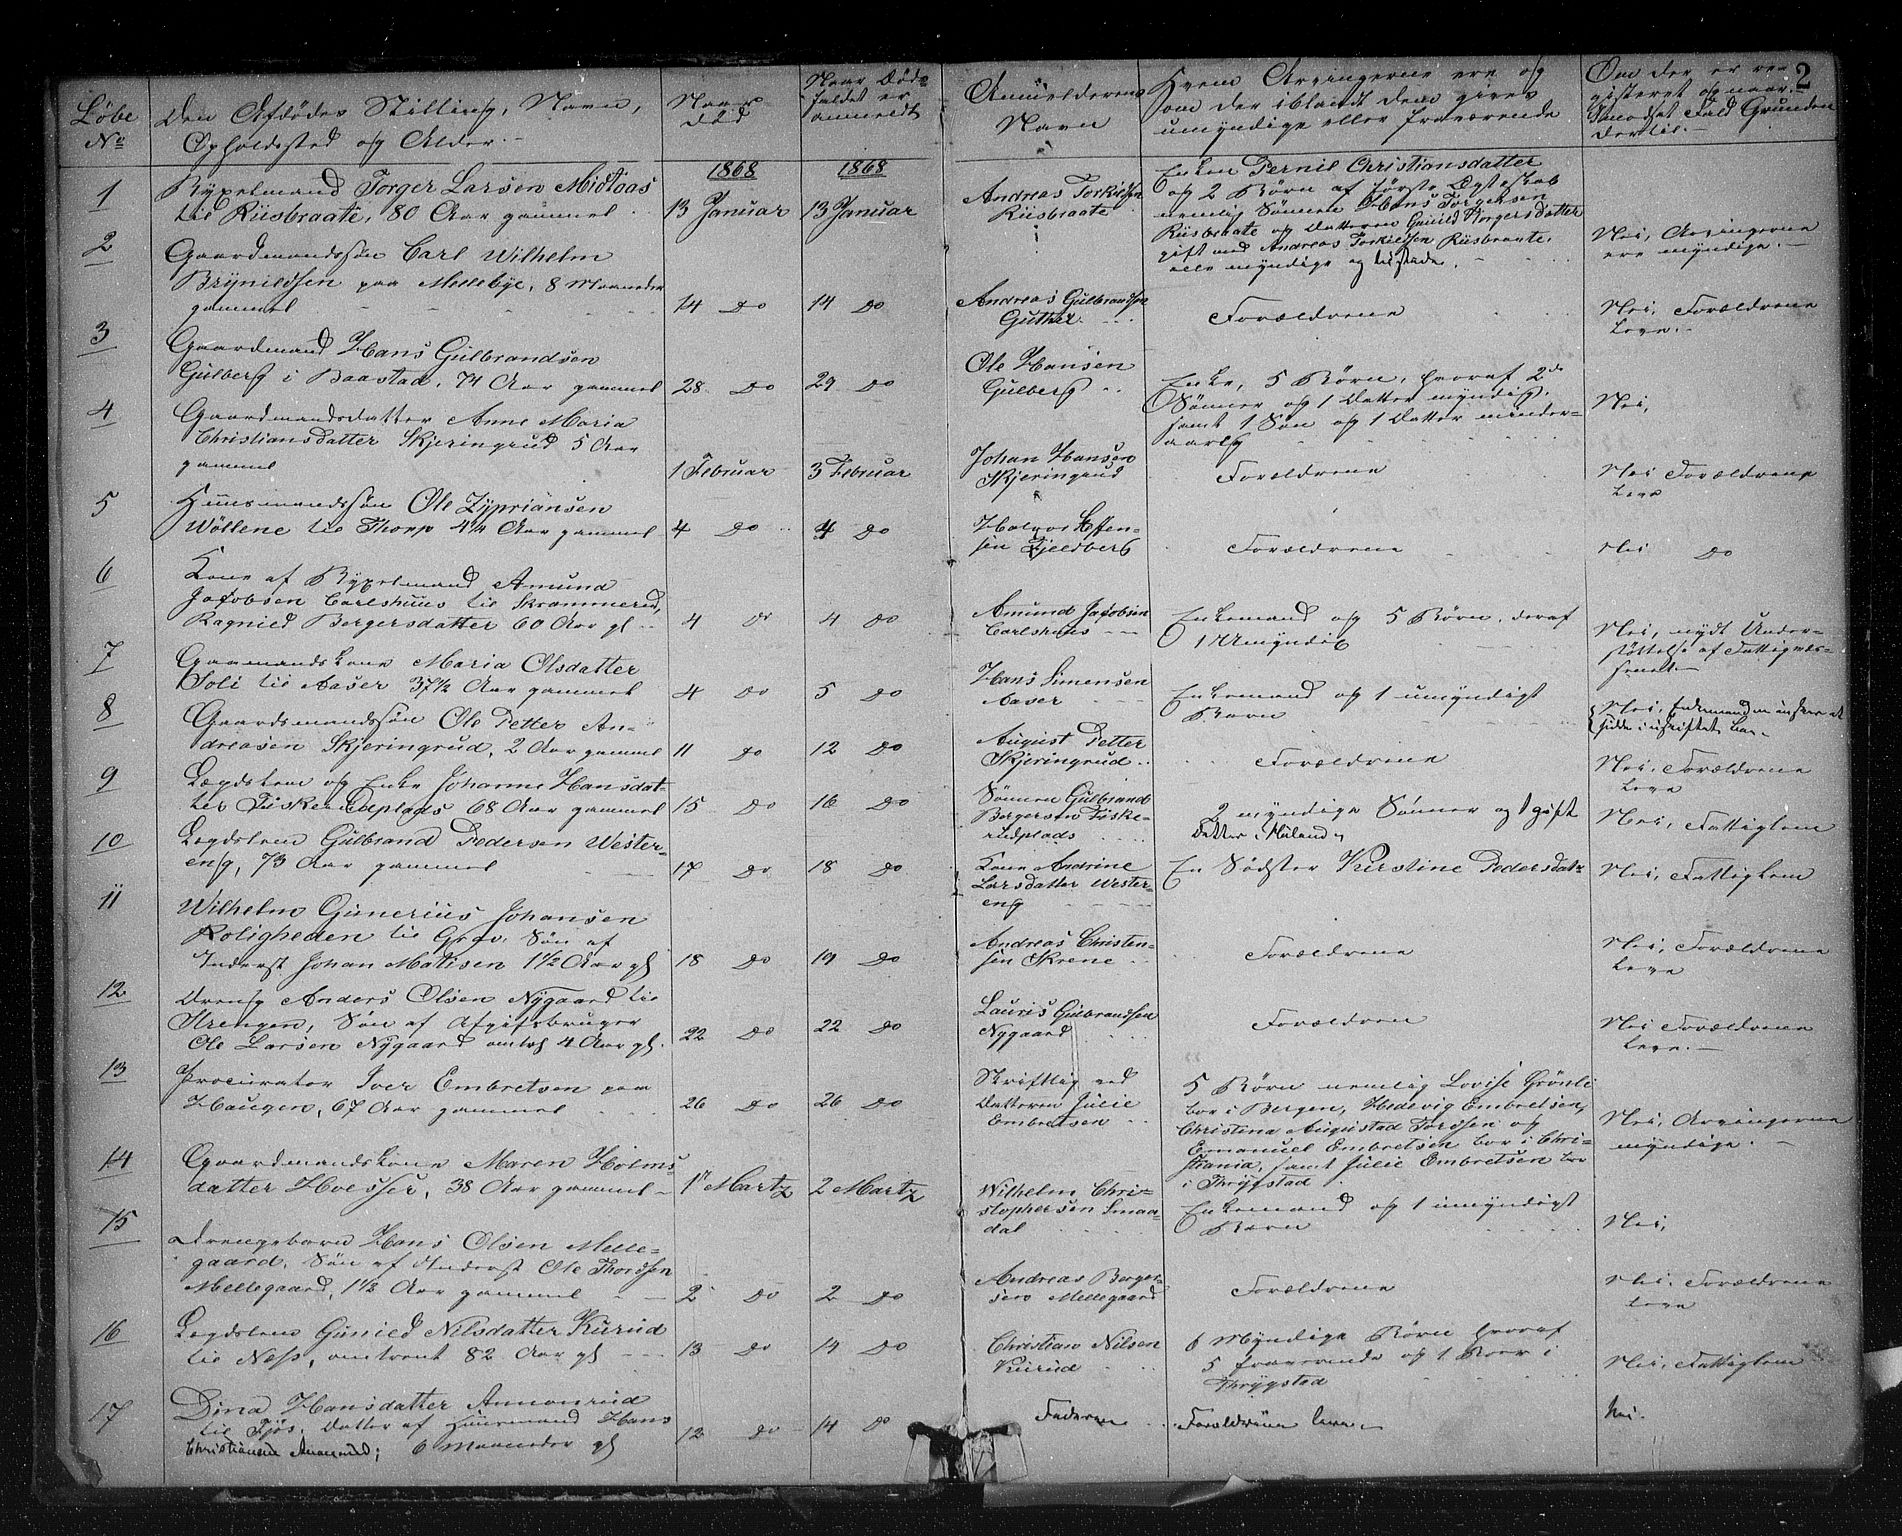 2
Løbe
No
Den Afdødes Stilling, Navn,
Opholdssted og Alder.
Naar
død
Naar Døds-
faldet er
anmeldt
Anmelderens
Navn
Hvem Arvingerne ere og
om der iblandt dem gives
umyndige eller fraværende
Om der er re-
gisteret og naar.
I modsat Fald Grunden
dertil.
1868
1868
1
Torger Larsen Midtaas
til Riisbraate, 80 Aar gammel
13 Januar
13 Januar
Andreas Torkildsen
Riisbraate
Enken Pernil Christiansdatter
og 2 Børn af første Ægteskab
nemlig Sønnen Hans Torgersen
Riisbraate og Datteren Gunild Torgersdatter
gift med Andreas Torkildsen Riisbraate,
alle myndige og tilstede.
Nei, Arvingerne
ere myndige.
2
Gaardmandssøn Carl Wilhelm
Brynildsen paa Mellebye, 8 Maaneder
gammel
14 do
14 do
Andreas Gulbrandsen
Guther
Forældrene
Nei, Forældrene
leve.
3
Gaardmand Hans Gulbrandsen
Gulberg i Baastad, 74 Aar gammel
28 do
29 do
Ole Hansen
Gulberg
Enke, 5 Børn, hvoraf 2de
Sønner og 1 Datter myndig,
samt 1 Søn og 1 Datter minder-
aarig
Nei,
4
Gaardmandsdatter Anne Maria
Christiansdatter Skjeringrud 5 Aar
gammel
1 Februar
3 Februar
Johan Hansen
Skjeringrud
Forældrene
Nei Forældrene
leve
5
Huusmandssøn Ole Zypriansen
Wøllene til Thorp 4 1/4 Aar gammel
4 do
4 do
Steffen-
sen Fjeldberg
Forældrene
Nei do
6
Kone af Amund
Jacobsen Carlshuus til Skrammerud,
Ragnild Bergersdatter 60 Aar gl
4 do
4 do
Amund Jacobsen
Carlshuus
Enkemand og 5 Børn, deraf
1 Umyndig
Nei, nydt Under-
støttelse af Fattigvæs-
senet
7
Gaarmandskone Maria Olsdatter
Soli til Aaser 37 1/2 Aar gammel
4 do
5 do
Hans Simensen
Aaser
Enkemand og 1 umyndigt
Barn
Nei, Enkemanden ønsker at
sidde i uskiftet Bo.
8
Gaardmandssøn Ole Petter An-
dreasen Skjeringrud, 2 Aar gammel
11 do
12 do
August Petter
Skjeringrud
Forældrene
Nei, Forældrene
leve
9
Lægdslem og Enke Johanne Hansdat-
ter Fiskerudplads 68 Aar gammel
15 do
16 do
Sønnen Gulbrand
Bergersen Fiske-
rudplads
2 myndige Sønner og 1 gift
Datter i Høland
Nei, Fattiglem
10
Lægdslem Gulbrand Pedersen Wester-
eng, 73 Aar gammel
17 do
18 do
Kone Andrine
Larsdatter Wester-
eng
En Sødster Kirstine Pedersdat-
Nei, Fattiglem
11
Wilhelm Gunerius Johansen
Roligheden til Grav. Søn af
Inderst Johan Matisen 1 1/2 Aar gl
18 do
19 do
Andreas Christen-
sen Skrene
Forældrene
Nei, Forældrene
leve
12
Dreng Anders Olsen Nygaard til
Strengen, Søn af Afgiftsbruger
Ole Larsen Nygaard omtrt 4 Aar gl.
22 do
22 do
Lauris Gulbrandsen
Nygaard
Forældrene
Nei Forældrene
leve.
13
Procurator Iver Embretsen paa
Haugen, 67 Aar gammel
26 do
26 do
Skriftlig ved
Datteren Julie
Embretsen
5 Børn nemlig Lovise Grønli
bor i Bergen, Hedevig Embretsen,
Christina Augustad Tordsen og
Emanuel Embretsen bor i Chri-
stiania, samt Julie Embretsen bor
i Thrygstad
Nei, Arvingerne
myndige.
14
Gaardmandskone Maren Holms-
datter 38 Aar gammel
1st Martz
2 Martz
Wilhelm Chri-
stophersen Smaa-
dal
Enkemand og 1 umyndigt
Barn
Nei,
15
Drengebarn Hans Olsen Melle-
gaard, Søn af Inderst Ole Thordsen
Mellegaard, 1 1/2 Aar gammel
2 do
2 do
Andreas Berger-
sen Mellegaard
Forældrene
Nei, Forældrene
leve
16
Lægdslem Gunild Nilsdatter Kurud
til Næss, omtrent 82 Aar gl
13 do
14 do
Christian Nilsen
Kurud
6 Myndige Børn hvoraf
5 fraværende og 1 Boer i
Thrygstad
Nei, Fattiglem
17
Dina Hansdatter Ammonrud
til Fjøs, Datter af Huusmand Hans
Christiansen Ammonrud; 6 Maaneder gl
12 do
14 do
Faderen
Forældrene leve
Nei.